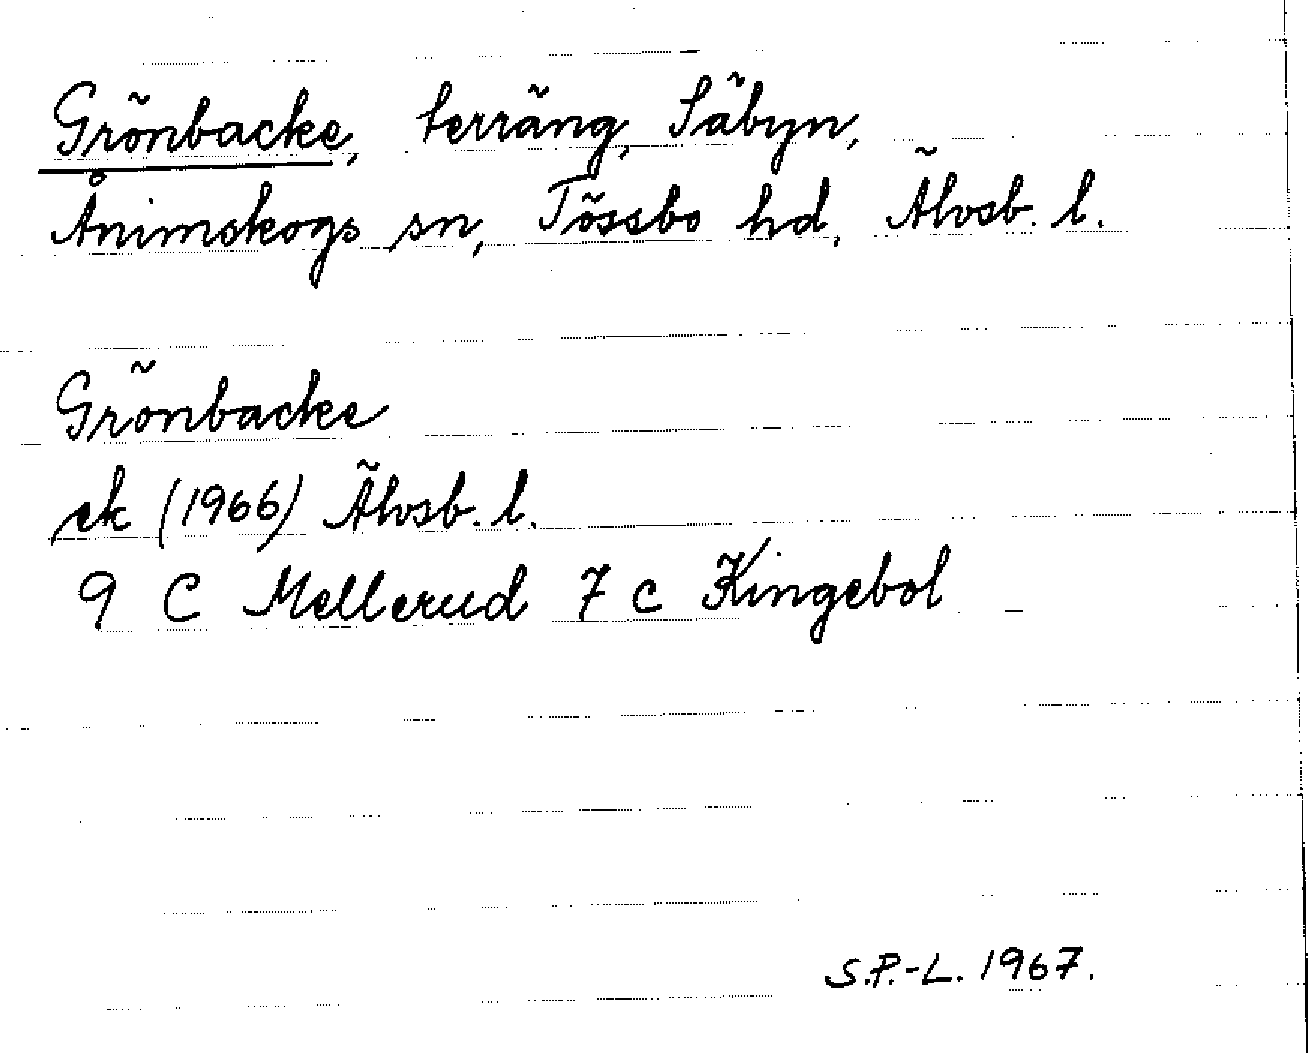 Grönbacke, terräng, Säbyn,
Ånimskogs sn, Tössbo hd, Älvsb. l.
Grönbacke
ek (1966) Älvsb. l.
9 C Mellerud 7 c Kingebol
S.P.-L. 1967.